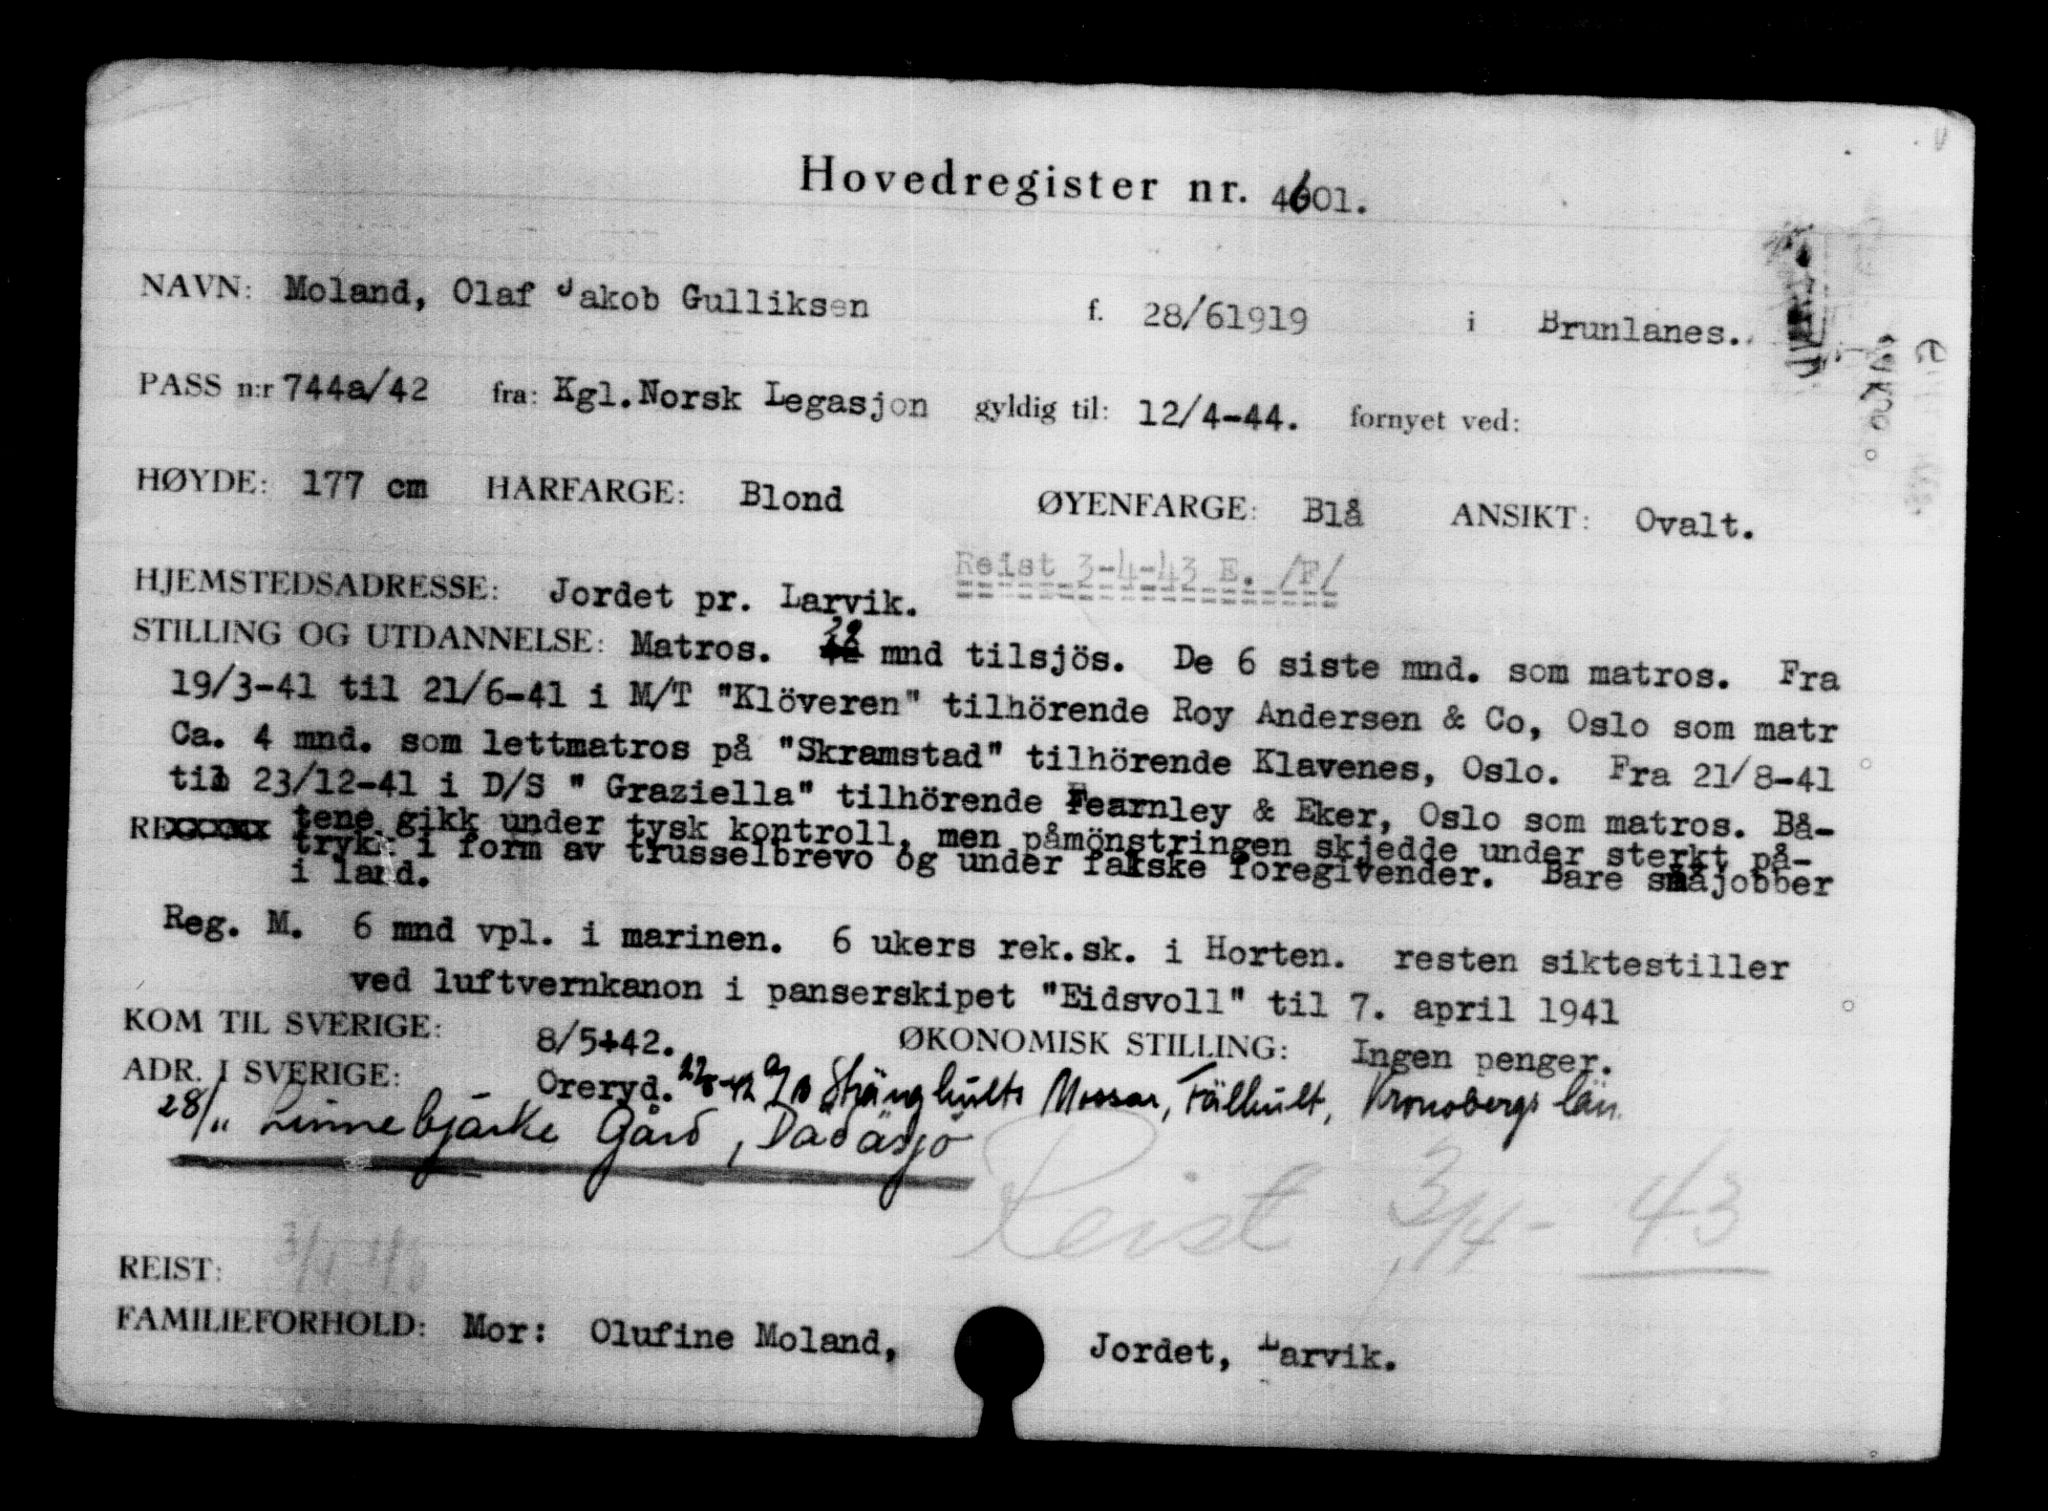 Hovedregister nr. 4601.
NAVN: Moland, Olaf Jakob Gulliksen f. 28/61919 i Brunlanes.
PASS n:r 744a/42 fra: Kgl.Norsk Legasjon gyldig til: 12/4-44. fornyet ved:
HØYDE: 177 cm HARFARGE: Blond ØYENFARGE: Blå ANSIKT: Ovalt.
Reist 3-4-43 E. /F/
HJEMSTEDSADRESSE: Jordet pr. Larvik.
STILLING OG UTDANNELSE: Matros. mnd tilsjös. De 6 siste mnd. som matros. Fra
19/3-41 til 21/6-41 i M/T "Klöveren" tilhörende Roy Andersen & Co, Oslo som matr
Ca. 4 mnd. som lettmatros på "Skramstad" tilhörende Klavenes, Oslo. Fra 21/8-41
til 23/12-41 i D/S " Graziella" tilhörende Fearnley & Eker, Oslo som matros. Bå-
RExxxxx tene gikk under tysk kontroll, men påmönstringen skjedde under sterkt på-
trykk i form av trusselbrevo og under falske foregivender. Bare småjobber
i land.
Reg. M. 6 mnd vpl. i marinen. 6 ukers rek.sk. i Horten. resten siktestiller
ved luftvernkanon i panserskipet "Eidsvoll" til 7. april 1941
KOM TIL SVERIGE: 8/5+42. ØKONOMISK STILLING: Ingen penger.
ADR. I SVERIGE: Öreryd. A/B Stjänghults Mossar, Fälhult, Kronobergs län
28/11 Linnebjörke Gård, Dadäsjö
Reist 3/4-43
REIST:
FAMILIEFORHOLD: Mor: Olufine Moland, Jordet, Larvik.